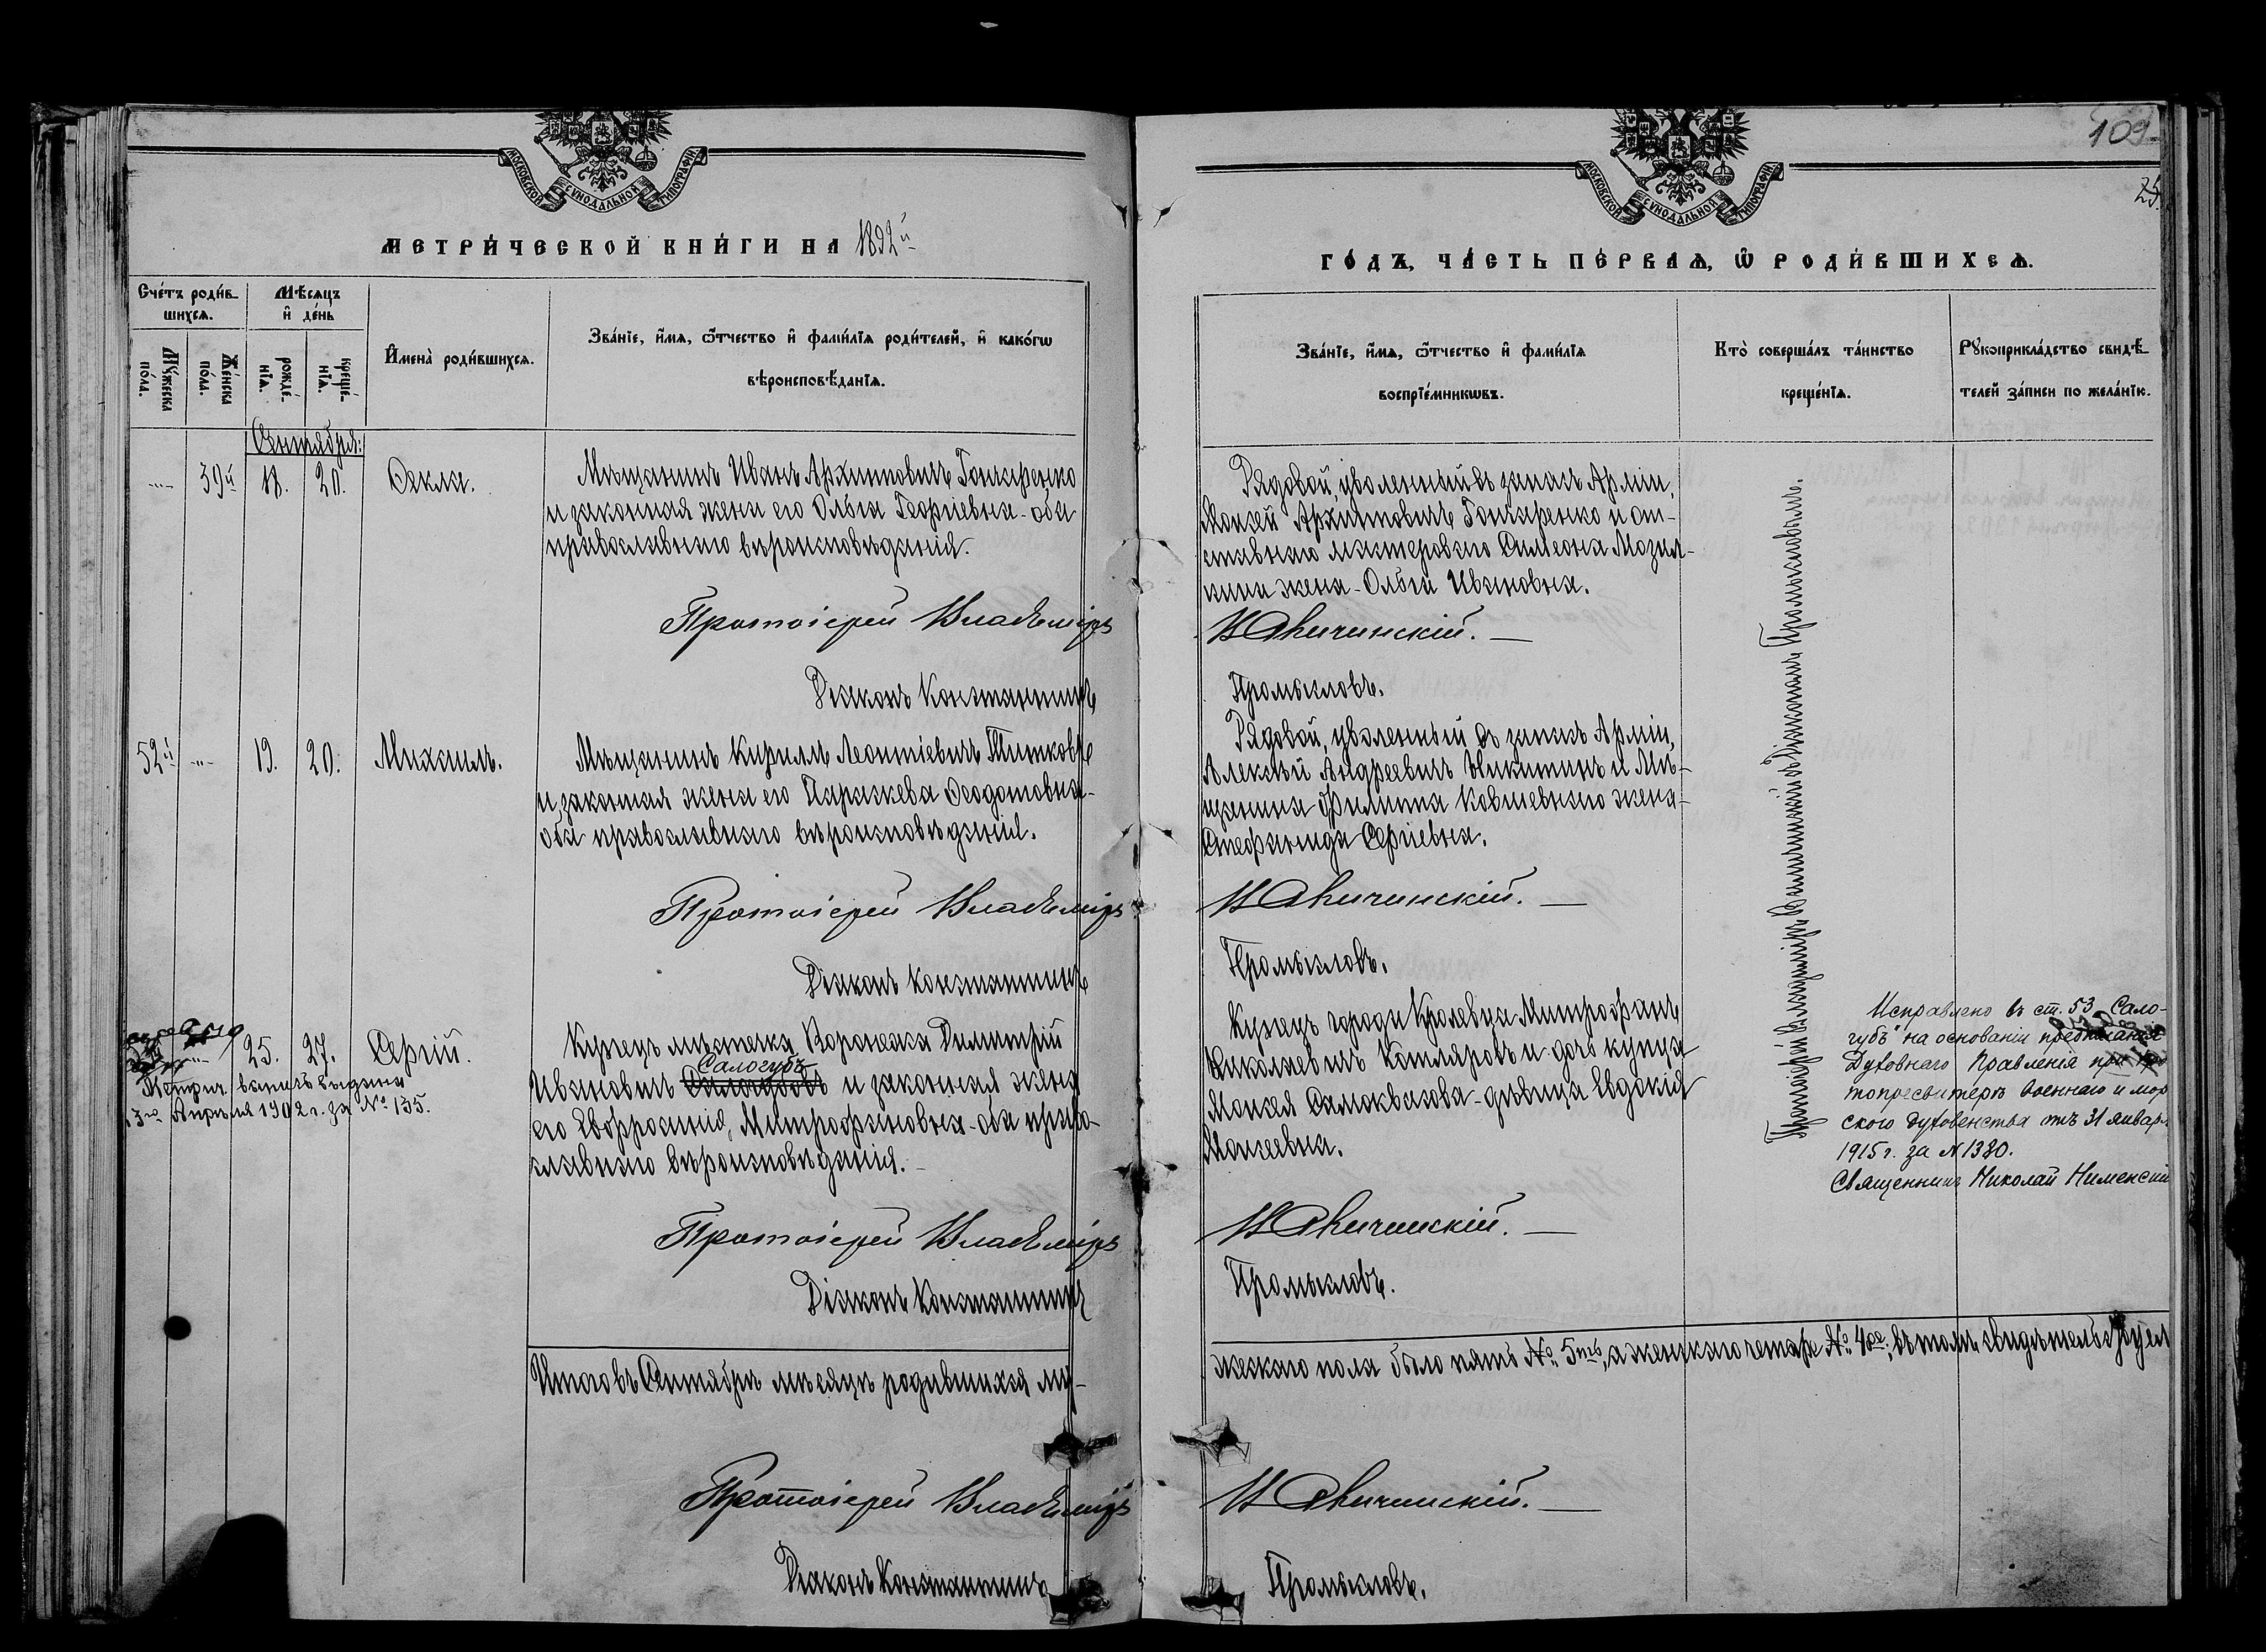 109
25.
МОСКОВСКОЙ СѴНОДАЛЬНОЙ ТИПОГРАФІИ
МЕТРИ́ЧЕСКОЙ КНИ́ГИ НА 1892й
Сче́тъ роди́в-
шихся.
Мѣ́сяцъ
и҆ де́нь
Му́жеска
по́ла.
Же́нска
по́ла.
рожде́-
нїѧ.
креще́-
нїѧ.
И҆мена̀ роди́вшихсѧ.
Зва́нїе, и҆́мѧ, ѻ҆́тчество и҆ фами́лїѧ роди́телей, и҆ како́гѡ
вѣроисповѣ́данїѧ.
Сентября:
39й 18. 20. Ѳекла.
Мѣщанинъ Иванъ Архиповичъ Гончаренко
и законная жена его Ольга Георгіевна - оба
православнаго вѣроисповѣданія.
Протоіерей Владиміръ
Діаконъ Константинъ
52й 19. 20. Михаилъ.
Мѣщанинъ Кириллъ Леонтіевичъ Титковъ
и законная жена его Параскева Ѳеодотовна-
оба православнаго вѣроисповѣданія.
Протоіерей Владиміръ
Діаконъ Константинъ
25. 27. Сергій.
Метрич. выпись выдана
13го Апрѣля 1902 г. за № 135.
Купецъ мѣстечка Воронежа Димитрій
Салогубъ
Ивановичъ и законная жена
его Евфросинія Митрофановна - оба право-
славнаго вѣроисповѣданія.
Протоіерей Владиміръ
Діаконъ Константинъ
Итого въ Сентябрѣ мѣсяцѣ родившихся му-
Протоіерей Владиміръ
Діаконъ Константинъ
МОСКОВСКОЙ СѴНОДАЛЬНОЙ ТИПОГРАФІИ
ГО́ДЪ, ЧА́СТЬ ПЕ́РВАѦ, Ѡ҆ РОДИ́ВШИХСѦ.
Зва́нїе, и҆́мѧ, ѻ҆́тчество и҆ фами́лїѧ
воспрїе́мникѡвъ.
Кто̀ соверша́лъ та́инство
креще́нїѧ.
Рꙋкоприкла́дство свидѣ́-
телей за́писи по жела́нїю.
Рядовой, уволенный въ запасъ Арміи,
Моисей Архиповичъ Гончаренко и от-
ставнаго мастероваго Симеона Мозал-
кина жена - Ольга Ивановна.
Свичинскій.
Промысловъ.
Рядовой, уволенный въ запасъ Арміи,
Алексѣй Андреевичъ Никитинъ и Мѣ-
щанина Филиппа Ковшевнаго жена-
Стефанида Сергіевна.
Свичинскій.
Промысловъ.
Купецъ города Кролевца Митрофанъ
Николаевичъ Котляровъ и дочь купца
Мокея Самоквасова - дѣвица Евдокія
Мокеевна.
Свичинскій.
Промысловъ.
Протоіерей Владиміръ Свичинскій съ Діакономъ Промысловымъ.
Исправлено въ ст. 53 „Сало-
губъ" на основаніи предписанія
Духовнаго Правленія при Про
топресвитерѣ военнаго и мор
ского духовенства отъ 31 января
1915 г. за № 1380.
Священникъ Николай
жескаго пола было пять № 5ть, а женскаго четыре № 4ре; въ томъ свидѣтельствуемъ
Свичинскій.
Промысловъ.